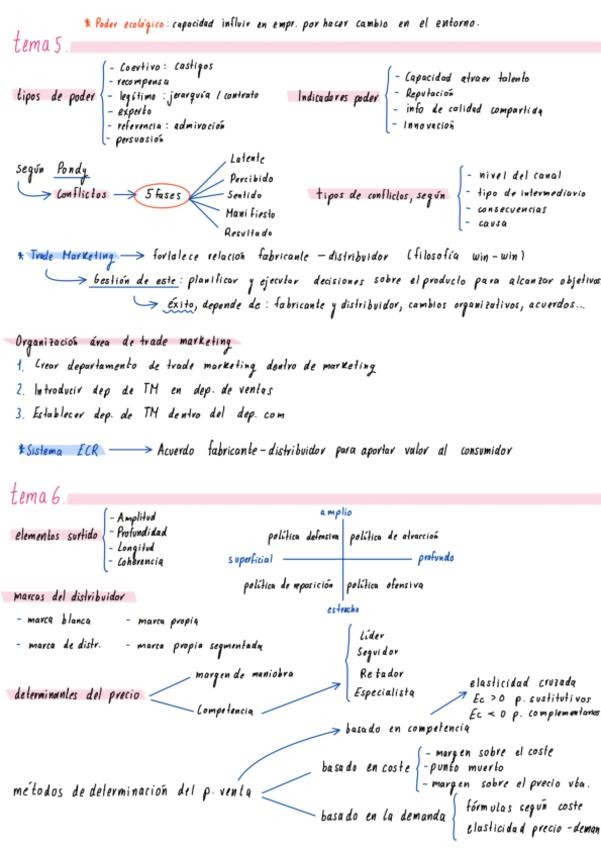 * Poder ecológico: capacidad influir en empr. por hacer cambio en el entorno.
tema 5.
tipos de poder
- Coertivo: castigos
- recompensa
- legítimo: jerarquía / contrato
- experto
- referencia: admiración
- persuasión
Indicadores poder
- Capacidad atraer talento
- Reputación
- info de calidad compartida
- Innovación
según Pondy
Conflictos
5 fases
Latente
Percibido
Sentido
Manifiesto
Resultado
tipos de conflictos, según
- nivel del canal
- tipo de intermediario
- consecuencias
- causa
* Trade Marketing → fortalece relación fabricante - distribuidor (filosofía win-win)
Gestión de este: planificar y ejecutar decisiones sobre el producto para alcanzar objetivos
éxito, depende de: fabricante y distribuidor, cambios organizativos, acuerdos...
Organización área de trade marketing
1. Crear departamento de trade marketing dentro de marketing
2. Introducir dep de TM en dep. de ventas
3. Establecer dep. de TM dentro del dep. com
* Sistema ECR → Acuerdo fabricante-distribuidor para aportar valor al consumidor
tema 6.
elementos surtido
- Amplitud
- Profundidad
- Longitud
- Coherencia
amplio
política defensiva
política de atracción
superficial
profundo
política de reposición
política ofensiva
estrecho
marcas del distribuidor
- marca blanca
- marca propia
- marca de distr.
- marca propia segmentada
determinantes del precio
margen de maniobra
Competencia
Líder
Seguidor
Retador
Especialista
métodos de determinación del p. venta
basado en competencia
elasticidad cruzada
Ec > 0 p. sustitutivos
Ec < 0 p. complementarios
basado en coste
- margen sobre el coste
- punto muerto
- margen sobre el precio vta.
basado en la demanda
fórmulas según coste
elasticidad precio-deman